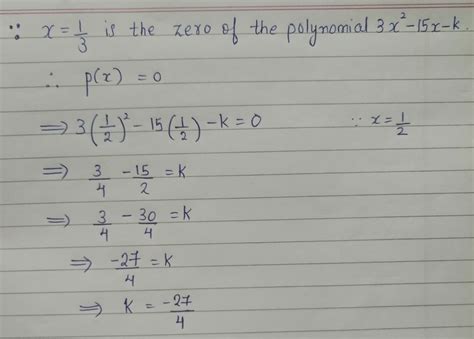 ∵ x = 1/3 is the zero of the polynomial 3x² - 15x - k.
∴ p(x) = 0
⇒ 3(1/2)² - 15(1/2) - k = 0 ∵ x = 1/2
⇒ 3/4 - 15/2 = k
⇒ 3/4 - 30/4 = k
⇒ -27/4 = k
⇒ k = -27/4